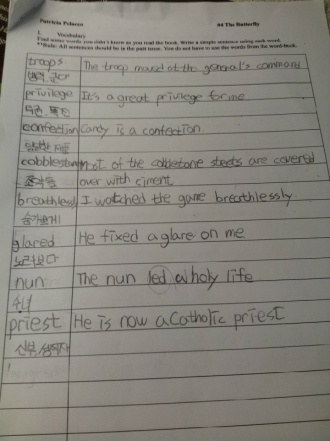 Patricia Polacco #4 The Butterfly
1.
Vocabulary
Find some words you didn't know as you read the book. Write a simple sentence using each word.
**Rule: All sentences should be in the past tense. You do not have to use the words from the word-block.
troops The troop moved at the general's command
privilege It's a great privilege for me.
특권
confection Candy is a confection.
cobblestone most of the cobblestone steets are covered
over with ciment
breathlessly I watched the game breathlessly.
숨가쁘게
glared He fixed a glare on me
노려보다
nun The nun led a holy life
수녀
priest He is now a Catholic priest
신부, 성직자